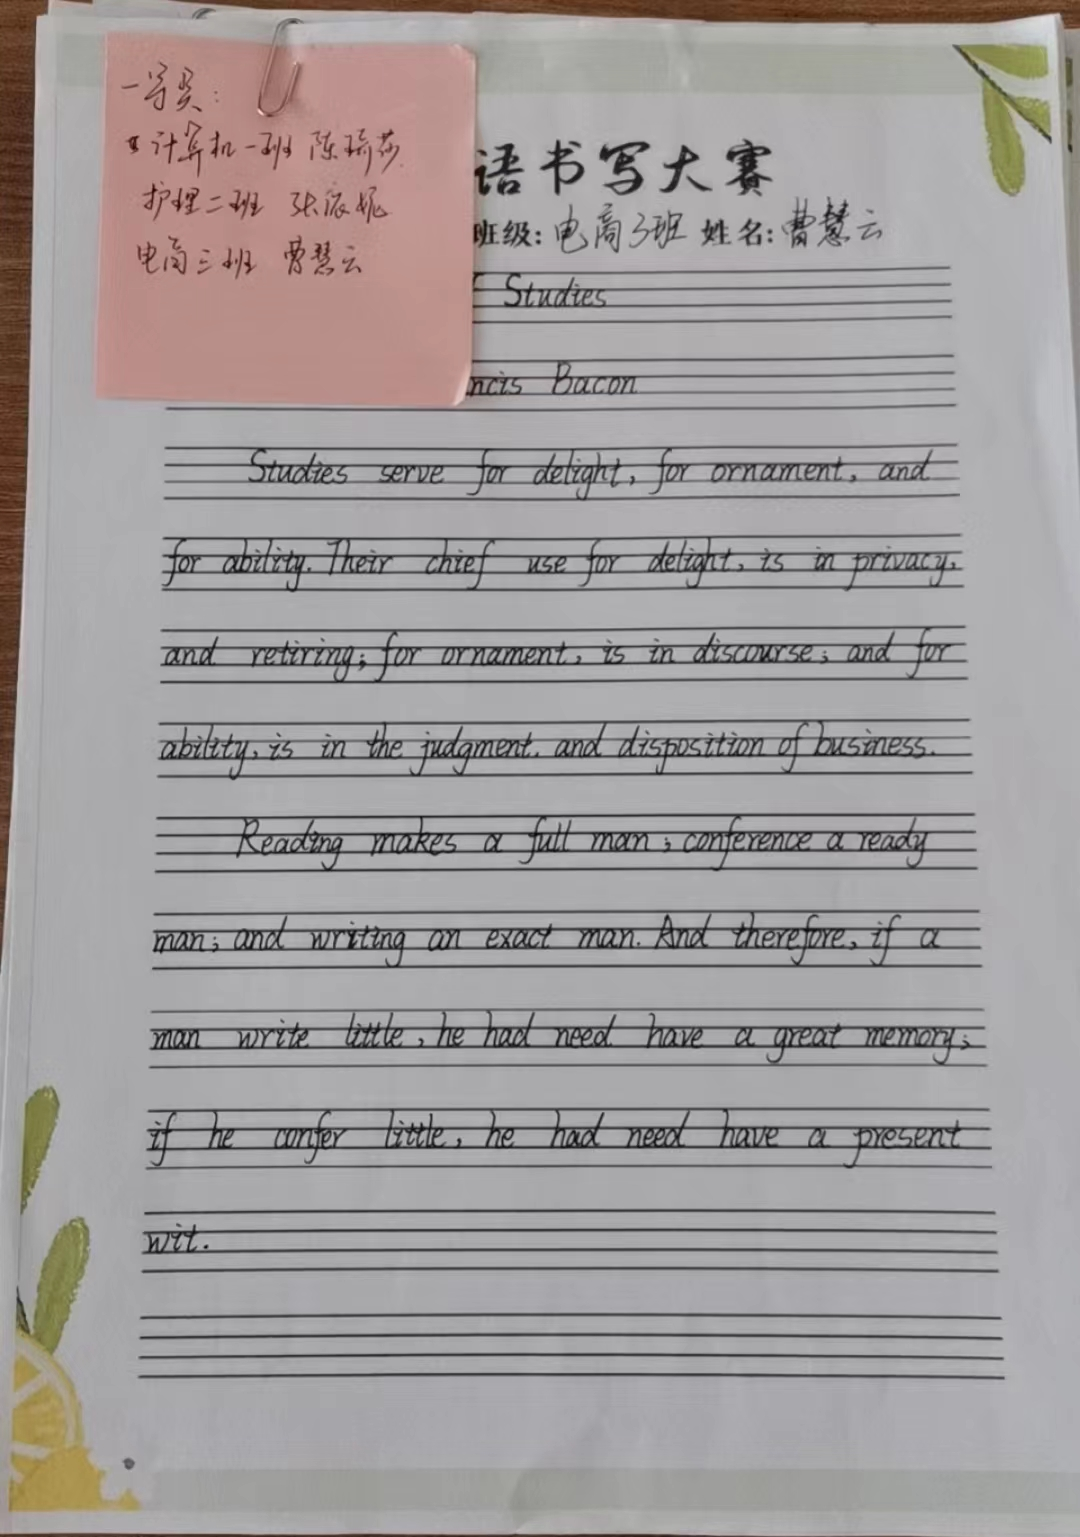 一等奖:
计算机一班 陈琦莎
护理二班 张宸妮
电商三班 曹慧云
语书写大赛
班级: 电商3班 姓名: 曹慧云
Studies
ncis Bacon
Studies serve for delight, for ornament, and
for ability. Their chief use for delight, is in privacy,
and retiring; for ornament, is in discourse; and for
ability, is in the judgment, and disposition of business.
Reading makes a full man; conference a ready
man; and writing an exact man. And therefore, if a
man write little, he had need have a great memory;
if he confer little, he had need have a present
wit.